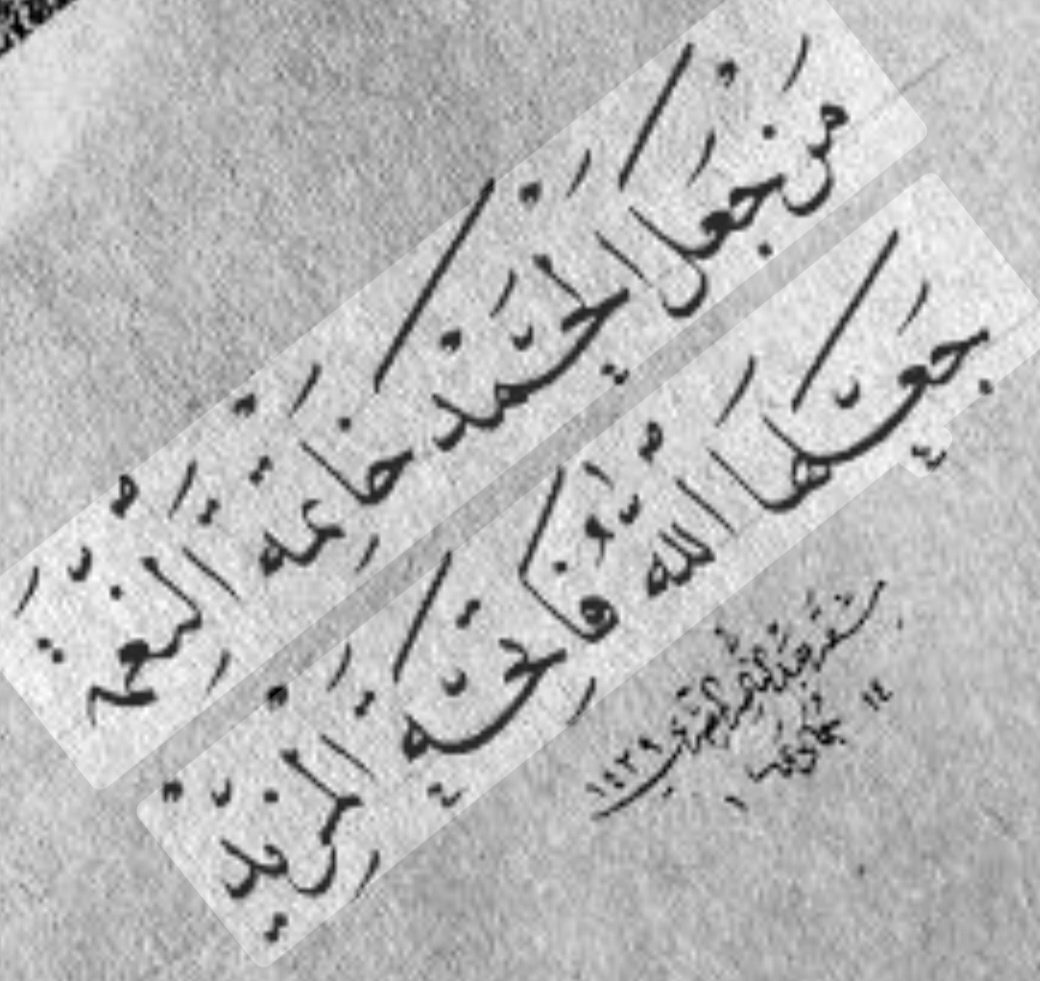 مَنْ جَعَلَ الْحَمْدَ خَاتِمَةَ النِّعْمَةِ
جَعَلَهَا اللهُ فَاتِحَةَ الْمَزِيدِ
١٤٣٩
١٤ جمادى ١